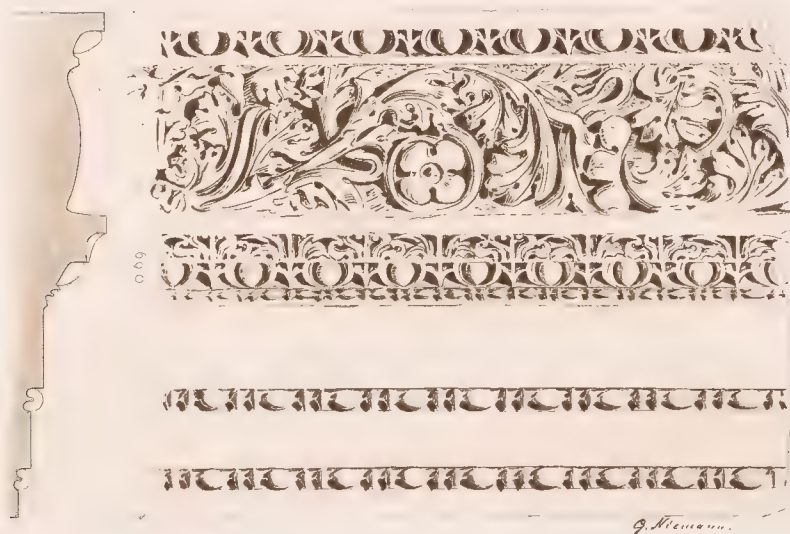 660
G. Niemann.